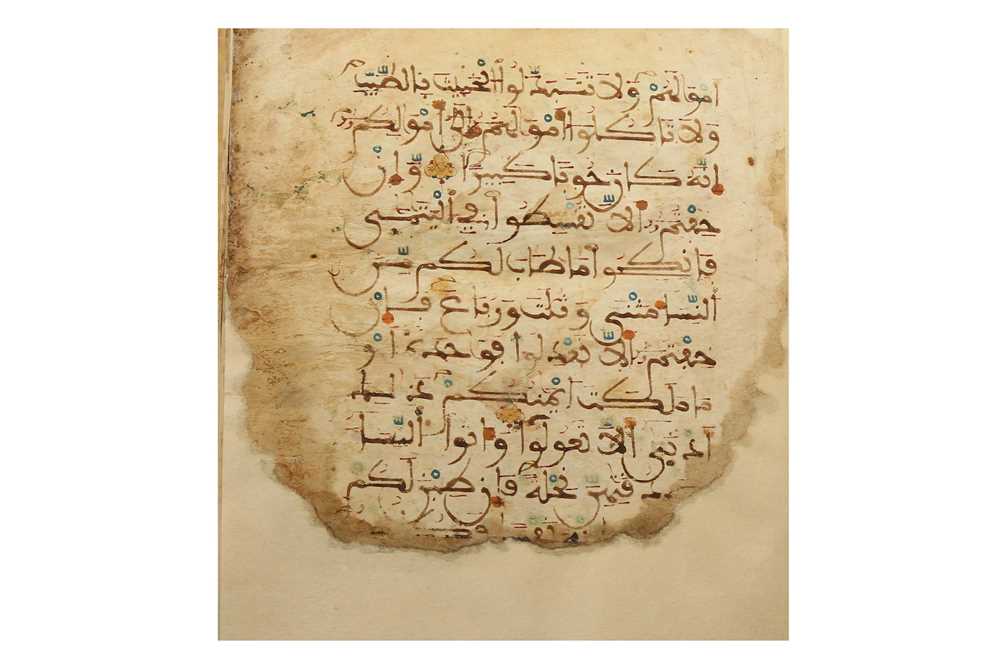 أَمْوَالَهُمْ وَلَا تَتَبَدَّلُوا الْخَبِيثَ بِالطَّيِّبِ
وَلَا تَاكُلُوا أَمْوَالَهُمْ إِلَى أَمْوَالِكُمْ
إِنَّهُ كَانَ حُوبًا كَبِيرًا وَإِنْ
خِفْتُمْ أَلَّا تُقْسِطُوا فِي الْيَتَمَى
فَانكِحُوا مَا طَابَ لَكُم مِّنَ
النِّسَا مَثْنَى وَثُلَثَ وَرُبَاعَ فَإِنْ
خِفْتُمْ أَلَّا تَعْدِلُوا فَوَاحِدَةً أَوْ
مَا مَلَكَتْ أَيْمَنُكُمْ ذَلِكَ
أَدْنَى أَلَّا تَعُولُوا وَءَاتُوا النِّسَا
قَتِهِنَّ نِحْلَةً فَإِن طِبْنَ لَكُمْ
مِنْهُ نَفْسًا